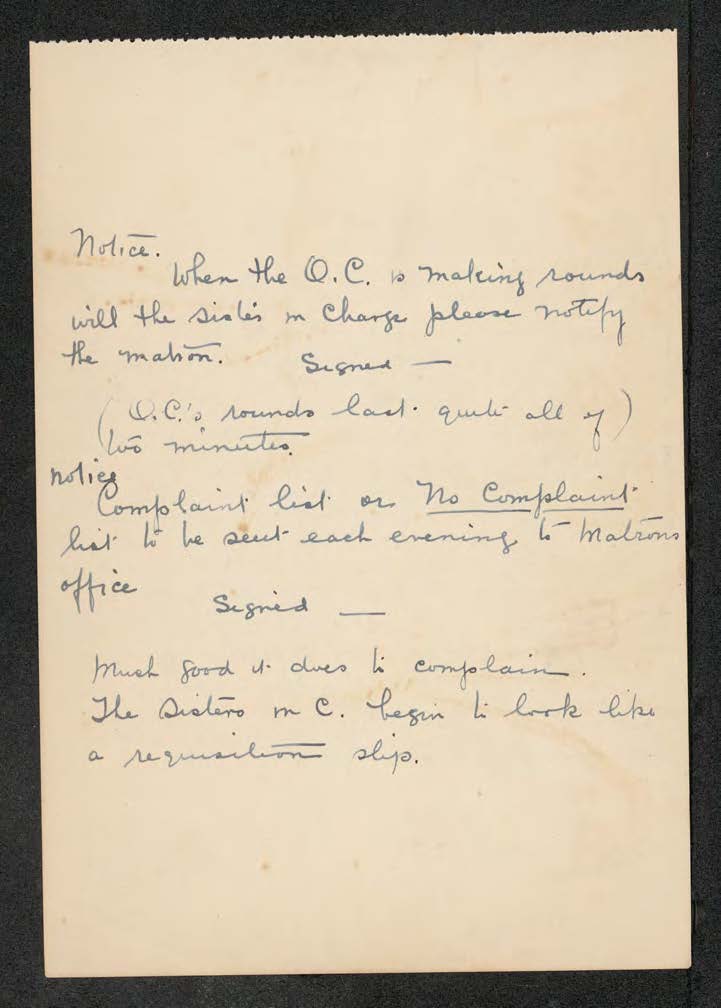 Notice.
When the O.C. is making rounds
will the sister in Charge please notify
the matron. Signed —
(O.C.'s rounds last quite all of)
two minutes.
notice
Complaint list or No Complaint
list to be sent each evening to Matrons
office
Signed —
Much good it does to complain.
The Sisters in C. begin to look like
a requisition slip.